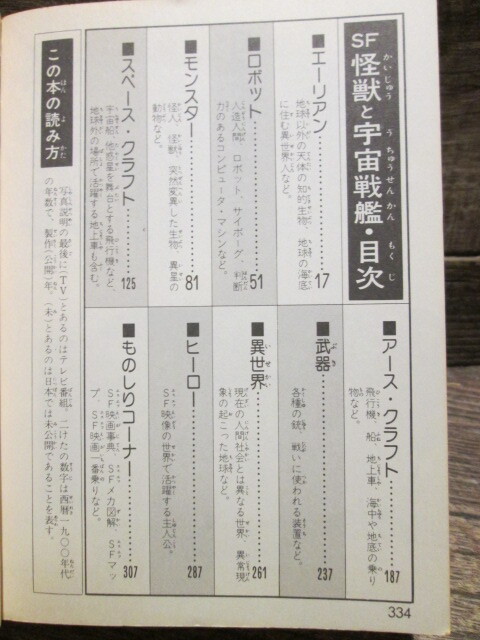 SF怪獣と宇宙戦艦・目次
■エーリアン…………17
地球以外の天体の知的生物、地球の海底
に住む異世界人など。
■ロボット…………51
人造人間、ロボット、サイボーグ、判断
力のあるコンピュータ・マシンなど。
■モンスター…………81
怪人、怪獣、突然変異した生物、異星の
動物など。
■スペース・クラフト…………125
宇宙船、他惑星を舞台とする飛行機など、
地球外の場所で活躍する地上車も含む。
■アース・クラフト…………187
飛行機、船、地上車、海中や地底の乗り
物など。
■武器…………237
各種の銃、戦いに使われる装置など。
■異世界…………261
現在の人間社会とは異なる世界、異常現
象の起こった地球など。
■ヒーロー…………287
SF映像の世界で活躍する主人公。
■ものしりコーナー…………307
SF映画事典、SFメカ図解、SFマッ
プ、SF映画一番乗りなど。
この本の読み方
写真説明の最後に(TV)とあるのはテレビ番組、二けたの数字は西暦一九〇〇年代
の年数で、製作(公開)年、(未)とあるのは日本では未公開であることを表す。
334